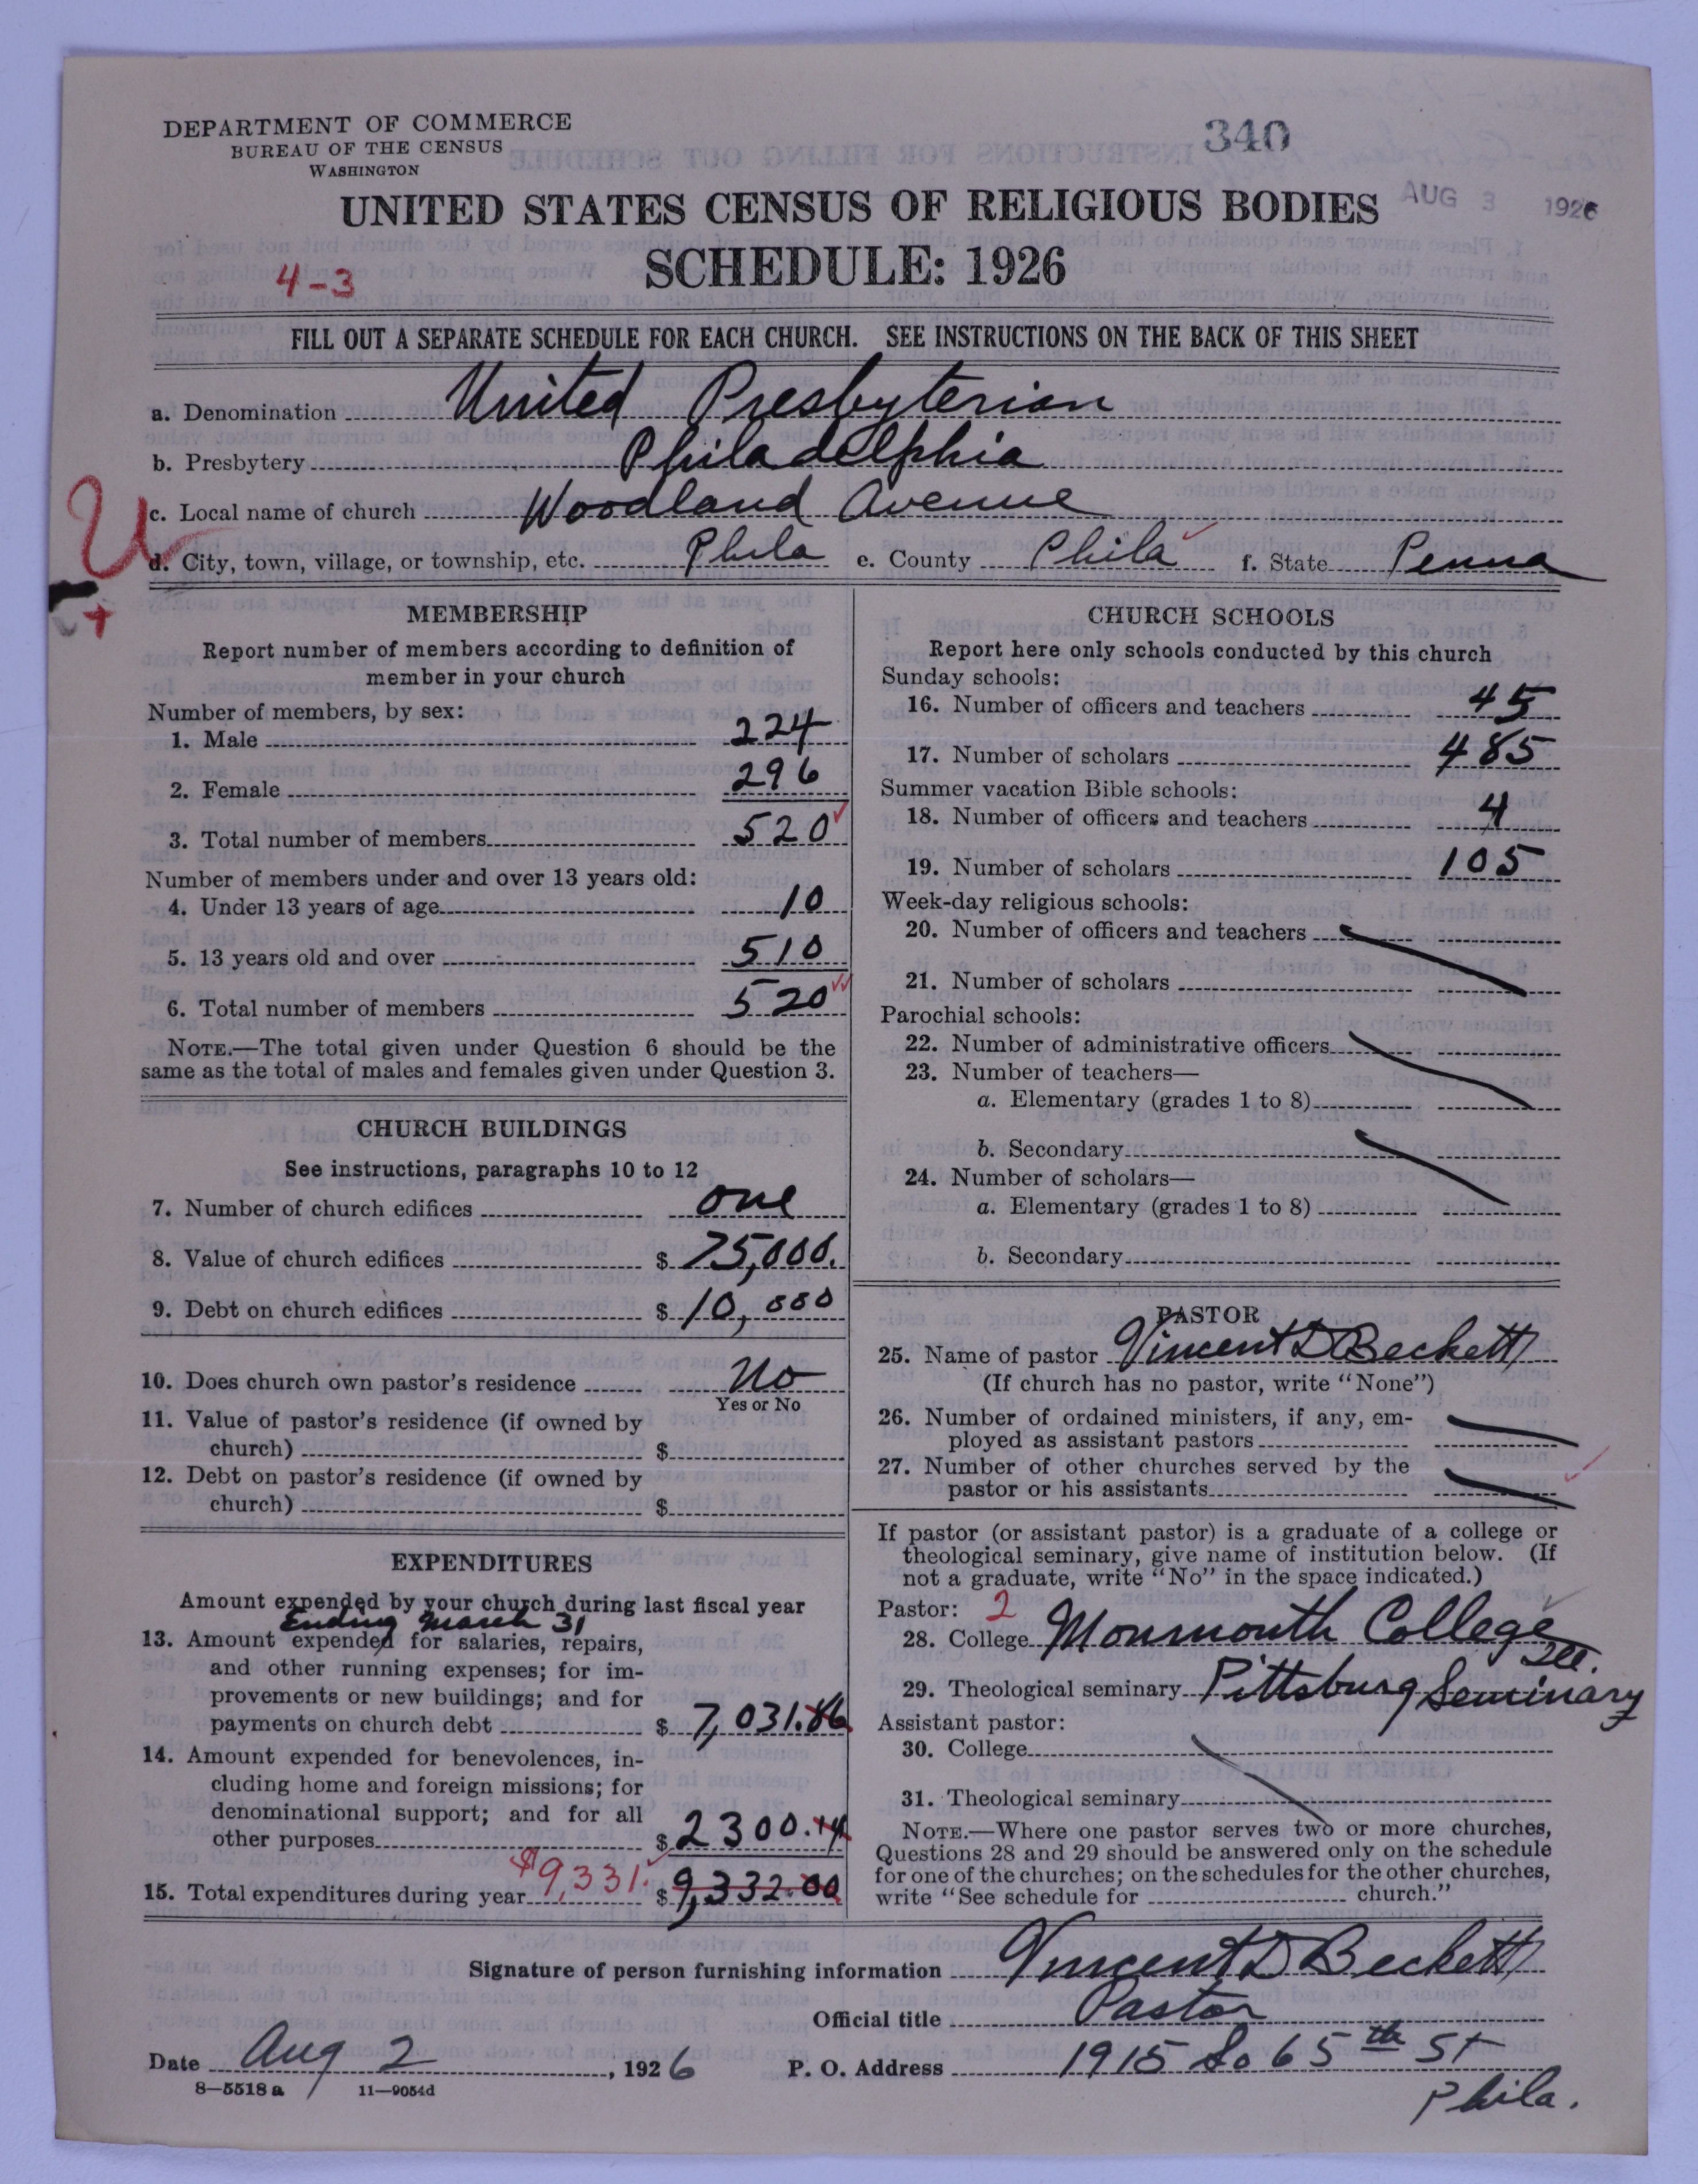 DEPARTMENT OF COMMERCE
BUREAU OF THE CENSUS
WASHINGTON
340
AUG 3 1926
UNITED STATES CENSUS OF RELIGIOUS BODIES
4-3
SCHEDULE: 1926
FILL OUT A SEPARATE SCHEDULE FOR EACH CHURCH. SEE INSTRUCTIONS ON THE BACK OF THIS SHEET
a. Denomination United Presbyterian
b. Presbytery Philadelphia
U
c. Local name of church Woodland Avenue
d. City, town, village, or township, etc. Phila e. County Phila f. State Penna
MEMBERSHIP
Report number of members according to definition of
member in your church
Number of members, by sex:
1. Male 224
2. Female 296
3. Total number of members 520
Number of members under and over 13 years old:
4. Under 13 years of age 10
5. 13 years old and over 510
6. Total number of members 520
NOTE.—The total given under Question 6 should be the
same as the total of males and females given under Question 3.
CHURCH BUILDINGS
See instructions, paragraphs 10 to 12
7. Number of church edifices one
8. Value of church edifices $ 75,000.
9. Debt on church edifices $ 10,000
10. Does church own pastor's residence No
Yes or No
11. Value of pastor's residence (if owned by
church) $
12. Debt on pastor's residence (if owned by
church) $
EXPENDITURES
Amount expended by your church during last fiscal year
Ending March 31
13. Amount expended for salaries, repairs,
and other running expenses; for im-
provements or new buildings; and for
payments on church debt $ 7,031.86
14. Amount expended for benevolences, in-
cluding home and foreign missions; for
denominational support; and for all
other purposes $ 2300.14
15. Total expenditures during year $9,331. $ 9,332.00
CHURCH SCHOOLS
Report here only schools conducted by this church
Sunday schools:
16. Number of officers and teachers 45
17. Number of scholars 485
Summer vacation Bible schools:
18. Number of officers and teachers 4
19. Number of scholars 105
Week-day religious schools:
20. Number of officers and teachers
21. Number of scholars
Parochial schools:
22. Number of administrative officers
23. Number of teachers—
a. Elementary (grades 1 to 8)
b. Secondary
24. Number of scholars—
a. Elementary (grades 1 to 8)
b. Secondary
PASTOR
25. Name of pastor Vincent D Beckett
(If church has no pastor, write "None")
26. Number of ordained ministers, if any, em-
ployed as assistant pastors
27. Number of other churches served by the
pastor or his assistants
If pastor (or assistant pastor) is a graduate of a college or
theological seminary, give name of institution below. (If
not a graduate, write "No" in the space indicated.)
Pastor: 2
28. College Monmouth College Ill.
29. Theological seminary Pittsburg Seminary
Assistant pastor:
30. College
31. Theological seminary
NOTE.—Where one pastor serves two or more churches,
Questions 28 and 29 should be answered only on the schedule
for one of the churches; on the schedules for the other churches,
write "See schedule for church."
Signature of person furnishing information Vincent D Beckett
Official title Pastor
Date Aug 2, 1926 P. O. Address 1915 So 65th St
Phila.
8—5518 a 11—9054d